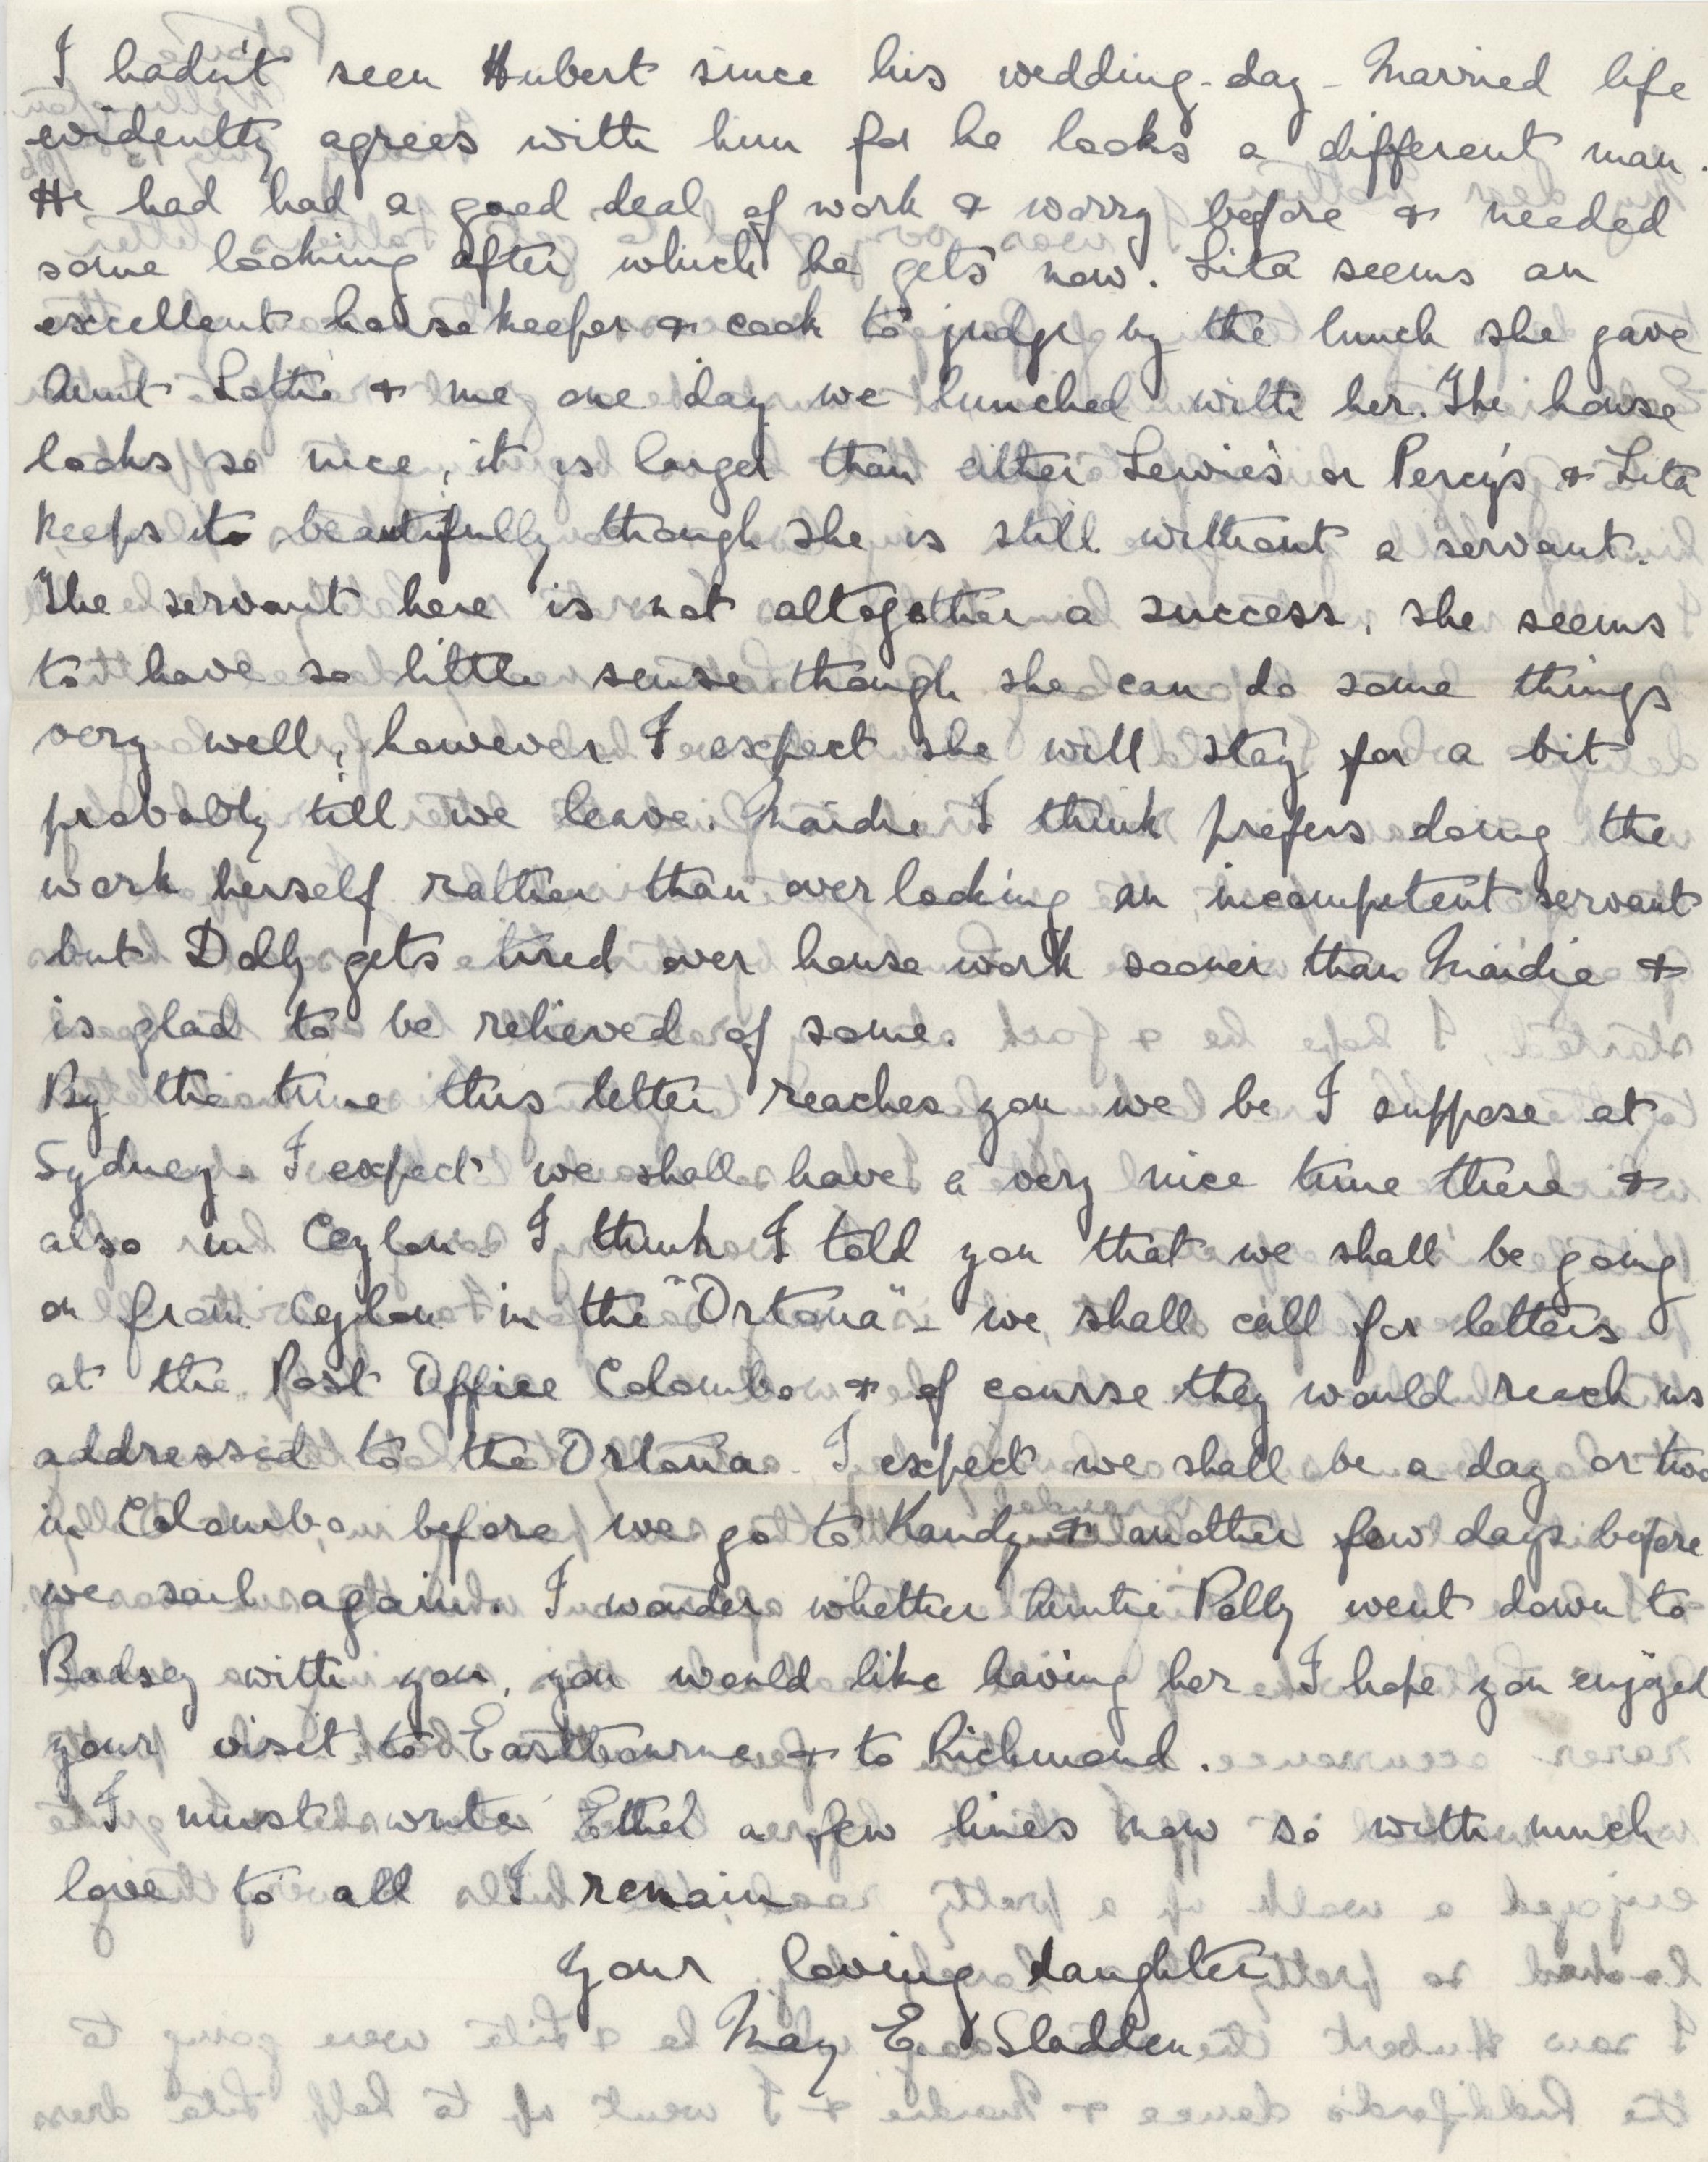 I hadn't seen Hubert since his wedding-day - Married life
evidently agrees with him for he looks a different man.
He had had a good deal of work & worry before & needed
some looking after which he gets now. Lita seems an
excellent housekeeper & cook to judge by the lunch she gave
Aunt Lottie & me one day we lunched with her. The house
looks so nice, it is larger than either Lewie's or Percy's & Lita
keeps it beautifully though she is still without a servant.
The servant here is not altogether a success, she seems
to have so little sense though she can do some things
very well, however I expect she will stay for a bit
probably till we leave. Maidie I think prefers doing the
work herself rather than overlooking an incompetent servant
but Dolly gets tired over house work sooner than Maidie &
is glad to be relieved of some.
By the time this letter reaches you we be I suppose at
Sydney. I expect we shall have a very nice time there &
also in Ceylon. I think I told you that we shall be going
on from Ceylon in the "Ortona" - we shall call for letters
at the Post Office Colombo & of course they would reach us
addressed to the Ortona. I expect we shall be a day or two
in Colombo before we go to Kandy & another few days before
we sail again. I wonder whether Auntie Polly went down to
Badsey with you, you would like having her. I hope you enjoyed
your visit to Eastbourne & to Richmond.
I must write Ethel a few lines now so with much
love to all I remain
Your loving daughter
May E. Sladden